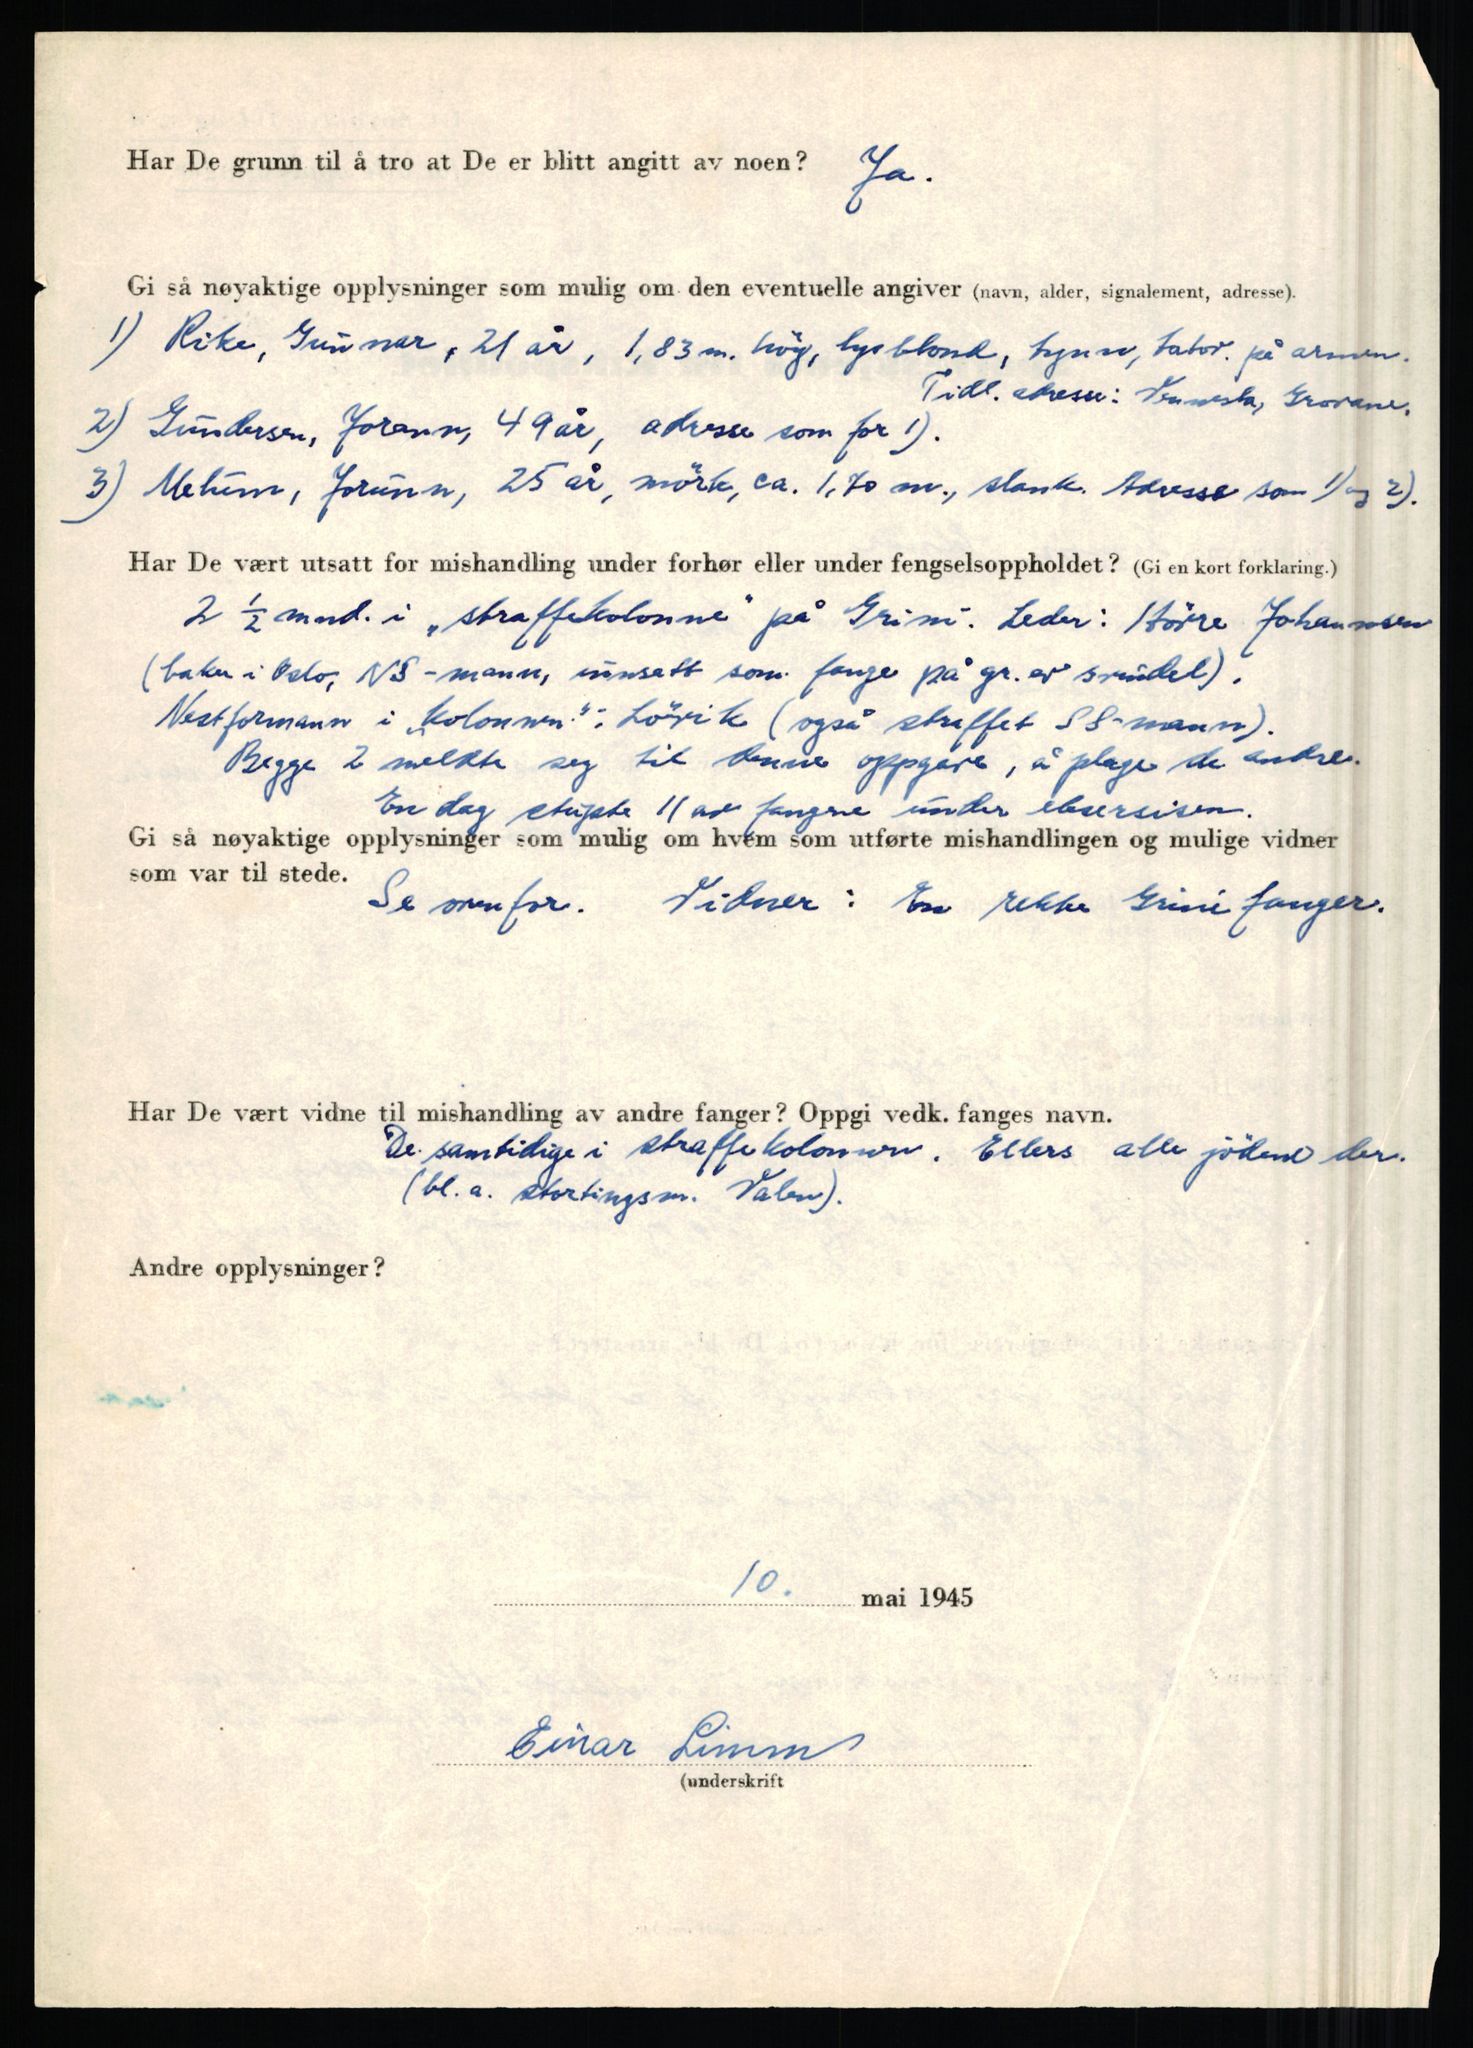 Har De grunn til å tro at De er blitt angitt av noen? Ja.
Gi så nøyaktige opplysninger som mulig om den eventuelle angiver (navn, alder, signalement, adresse).
1) Rike, Gunnar, 21 år, 1,83 m. høy, lysblond, tynn, tator. på armen.
Tidl. adresse: Vennesla, Grovane.
2) Gundersen, Jorunn, 49 år, adresse som for 1).
3) Melum, Jorunn, 25 år, mörk, ca. 1,70 m., slank. Adresse som 1) og 2).
Har De vært utsatt for mishandling under forhør eller under fengselsoppholdet? (Gi en kort forklaring.)
2 1/2 mnd. i „straffekolonne" på Grini. Leder: Johannsen
(baker i Oslo, NS-mann, innsatt som fange på gr. av svindel).
Nestformann i „kolonnen": Lövik (også straffet SS-mann).
Begge 2 meldte seg til denne oppgave, å plage de andre.
En dag stupte 11 av fangene under eksersisen.
Gi så nøyaktige opplysninger som mulig om hvem som utførte mishandlingen og mulige vidner
som var til stede. Se ovenfor. Vidner: En rekke Grinifanger.
Har De vært vidne til mishandling av andre fanger? Oppgi vedk. fanges navn.
De samtidige i straffekolonnen. Ellers alle jödene der.
(bl. a. stortingsm. Valen).
Andre opplysninger?
10. mai 1945
Einar Limm
(underskrift